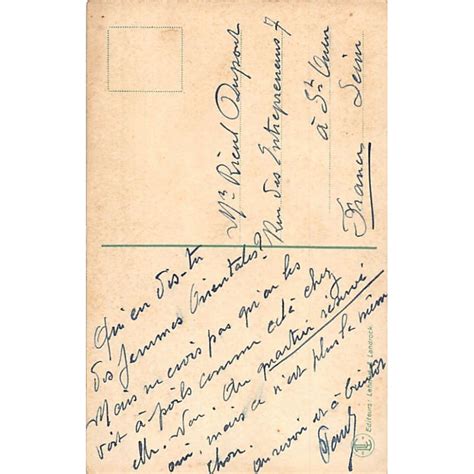 Mr Rieul Dupont
Rue des Entrepreneurs 7
à St Ouen
Seine
France
Qu'en dis-tu
des femmes Orientales?
Mais ne crois pas qu'on les
voit à poils comme cela chez
elle. Non. Au quartier réservé
oui, mais ce n'est plus la même
chose.
au revoir et à bientôt
Editeurs: Lehnert & Landrock